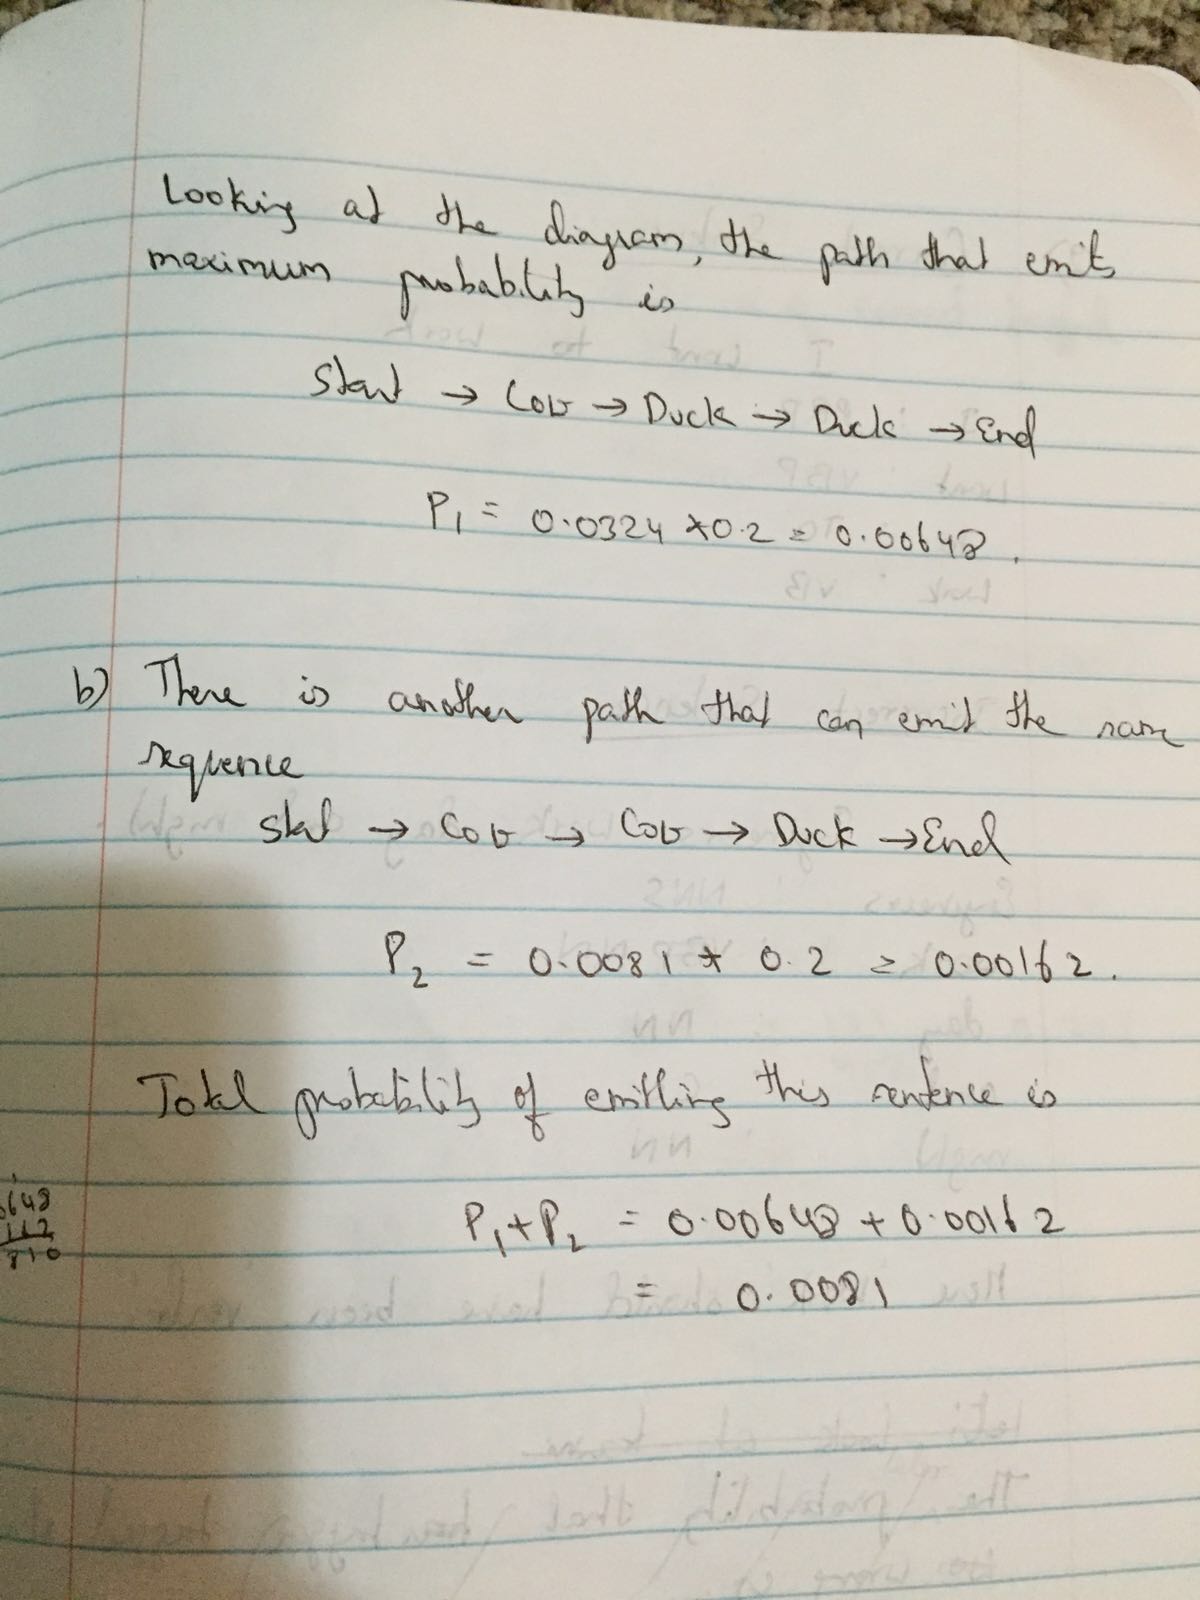 Looking at the diagram, the path that emits
maximum probability is
Start → Cow → Duck → Duck → End
P₁ = 0.0324 * 0.2 = 0.00648.
b) There is another path that can emit the same
sequence
Start → Cow → Cow → Duck → End
P₂ = 0.0081 * 0.2 = 0.00162.
Total probability of emitting this sentence is
648
162
810
P₁+P₂ = 0.00648 + 0.00162
= 0.0081